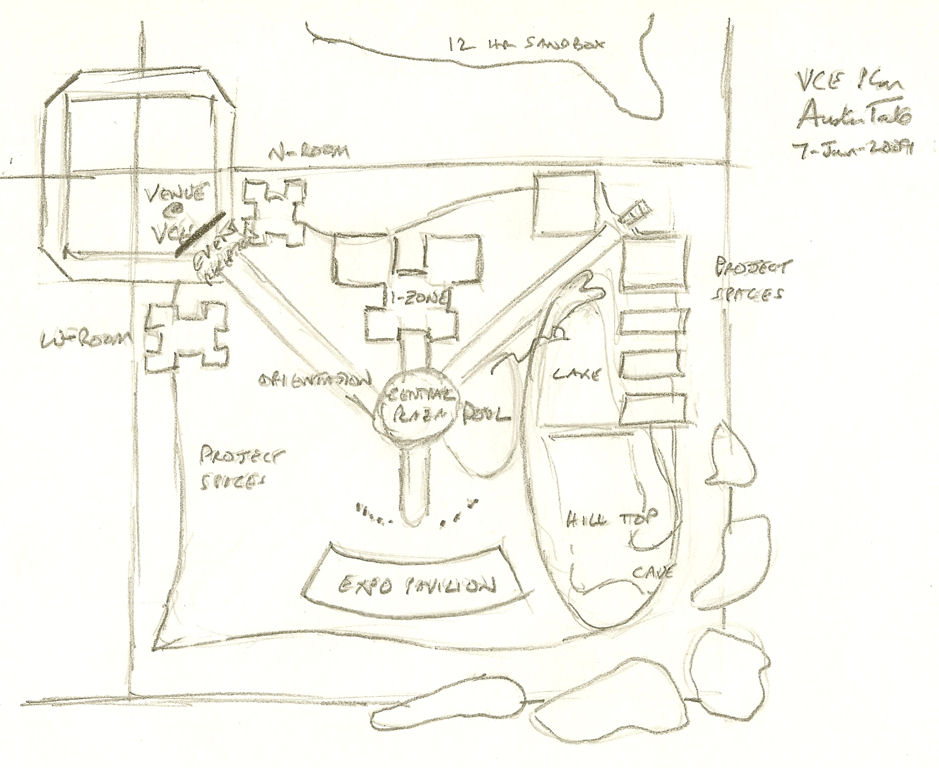 12 HR SANDBOX
VCE Plan
Austin Tate
7-Jan-2009
N-ROOM
VENUE
VCE
EVENT
I-ZONE
PROJECT
SPACES
W-ROOM
LAKE
ORIENTATION
CENTRAL
PLAZA
POOL
PROJECT
SPACES
HILL TOP
CAVE
EXPO PAVILION